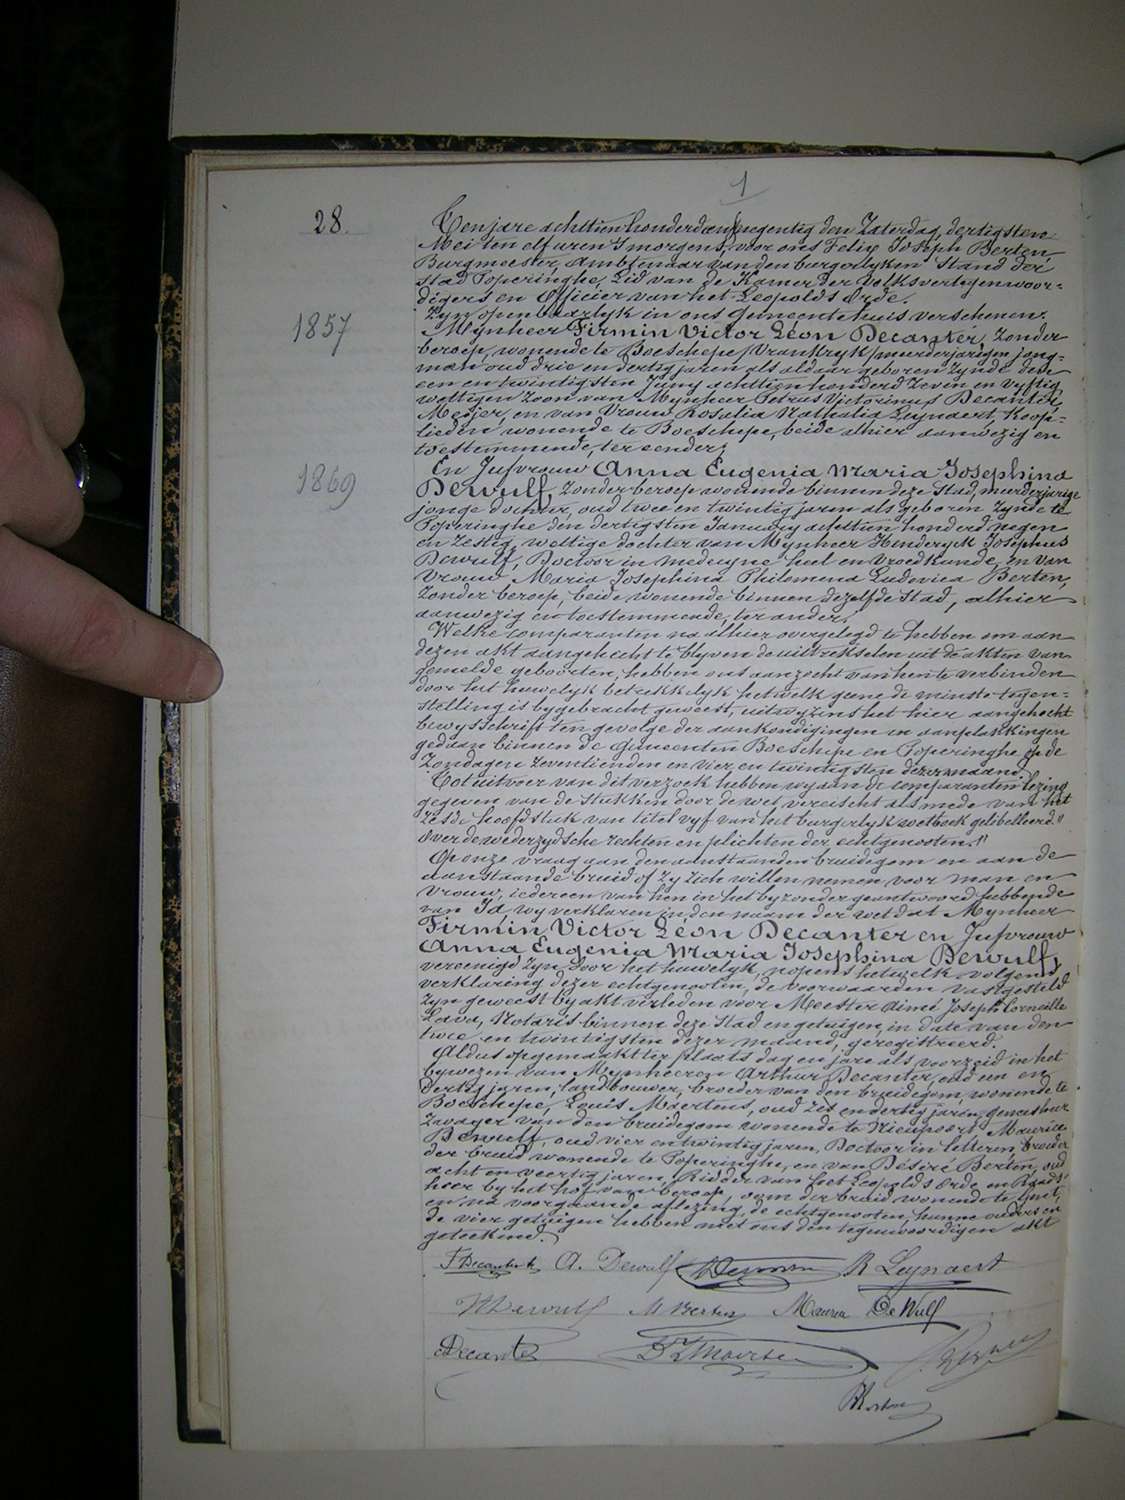 1
28.
Ten jare achttien honderd een negentig den Zaterdag, dertigsten
Mei ten elf uren 's morgens, voor ons Felix Joseph Berten,
Burgmeester, Ambtenaar van den burgerlyken Stand der
stad Poperinghe, Lid van de Kamer der Volksvertegenwoor-
digers en Officier van het Leopolds Orde.
Zyn openbaarlyk in ons gemeentehuis verschenen:
1857
Mynheer Firmin Victor Léon Decanter, Zonder
beroep, wonende te Boeschepe /Vrankryk/ meerderjarigen jong-
man oud drie en dertig jaren als aldaar geboren zynde den
een en twintigsten Juny achttien honderd zeven en vyftig
wettigen zoon van Mynheer Petrus Victorinus Decanter,
Meyer, en van Vrouw Rosalia Nathalia Leynaert, Koop-
lieden, wonende te Boeschepe, beide alhier aanwezig en
toestemmende, ter eender;
En Jufvrouw Anna Eugenia Maria Josephina
1869
Dewulf, Zonder beroep wonende binnen deze Stad, meerderjarige
jonge dochter, oud twee en twintig jaren als geboren zynde te
Poperinghe den dertigsten January achttien honderd negen
en zestig, wettige dochter van Mynheer Henderyck Josephus
Dewulf, Doctoor in medecyne heel en vroedkunde, en van
Vrouw Maria Josephina Philomena Ludovica Berten,
Zonder beroep, beide wonende binnen dezelfde Stad, alhier
aanwezig en toestemmende, ter ander.
Welke comparanten na alhier overgelegd te hebben om aan
dezen akt aangehecht te blyven de uittreksels uit de akten van
gemelde geboorten, hebben ons aanzocht van hen te verbinden
door het huwelyk betrekkelyk hetwelk geene de minste tegen-
stelling is bygebracht geweest, uitwyzens het hier aangehecht
bewysschrift ten gevolge der aankondigingen en aanplakkingen
gedaan binnen de gemeenten Boeschepe en Poperinghe op de
Zondagen zeventienden en vier en twintigsten dezer maand.
Tot uitvoer van dit verzoek hebben wy aan de comparanten lezing
gegeven van de stukken door de wet vereischt alsmede van het
zesde hoofdstuk van titel vyf van het burgerlyk wetboek gelibelleerd "
Over de wederzydsche rechten en plichten der echtgenooten."
Op onze vraag aan den aanstaanden bruidegom en aan de
aanstaande bruid of zy zich willen nemen voor man en
vrouw, iedereen van hen in het byzonder geantwoord hebbende
van Ja, wy verklaren in den naam der wet dat Mynheer
Firmin Victor Léon Decanter en Jufvrouw
Anna Eugenia Maria Josephina Dewulf,
vereenigd zyn door het huwelyk, nopens hetwelk volgens
verklaring dezer echtgenooten, de voorwaarden vastgesteld
zyn geweest by akt verleden voor Meester Aimé Joseph Corneille
Lava, Notaris binnen deze Stad en getuigen, in date van den
twee en twintigsten dezer maand, geregistreerd.
Aldus opgemaakt ter plaats dag en jare als voorzeid in het
bywezen van Mynheeren Arthur Decanter, oud een en
dertig jaren, landbouwer, broeder van den bruidegom, wonende te
Boeschepe, Louis Maertens, oud zes en dertig jaren, geneesheer
Zwager van den bruidegom wonende te Nieupoort, Maurice
Dewulf, oud vier en twintig jaren, Doctoor in letteren, broeder
der bruid wonende te Poperinghe, en van Désiré Berten, oud
acht en veertig jaren, Ridder van het Leopolds Orde en Raads-
heer by het hof van beroep, oom der bruid wonende te Gent,
en, na voorgaande aflezing, de echtgenooten, hunne ouders en
de vier getuigen hebben met ons den tegenwoordigen akt
geteekend.
A. Dewulf R Leynaert
HDewulf M Berten Maurice DeWulf
Decanter